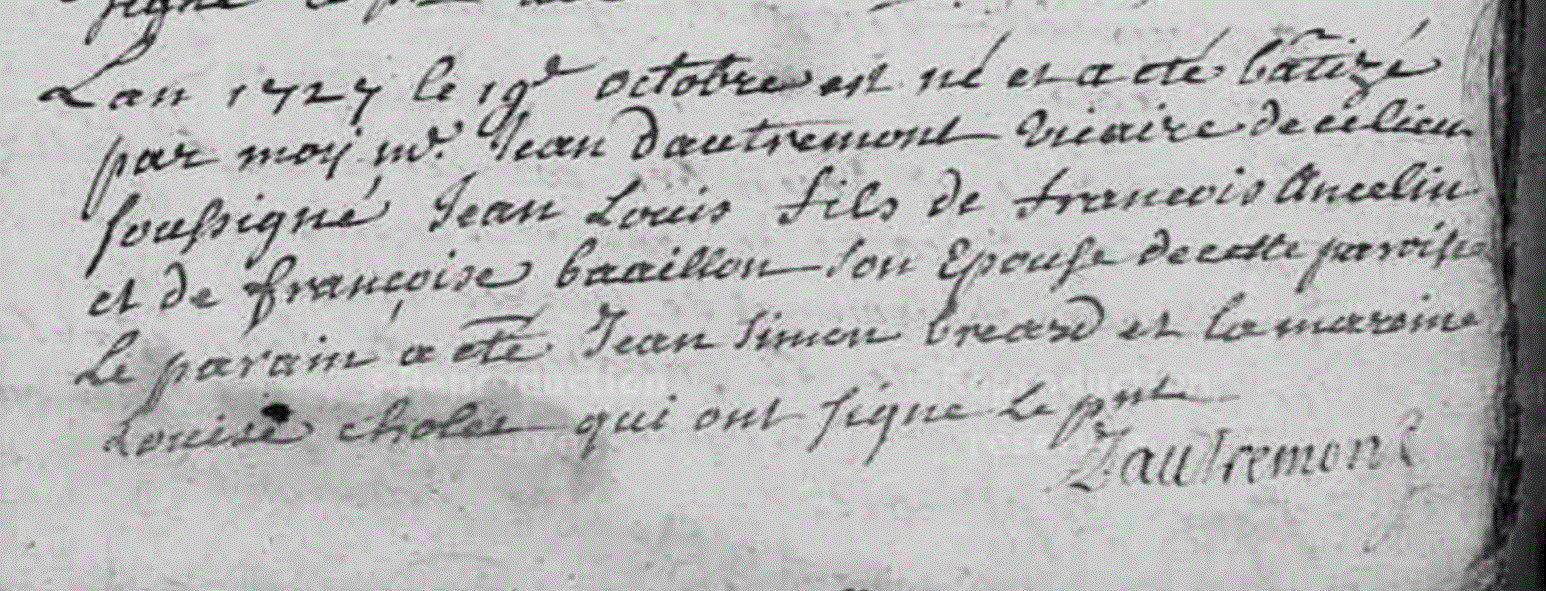 signé le
Lan 1727 le 19e octobre est né et a eté bâtizé
par moy mr. Jean Dautremont Vicaire de ce lieu
soussigné Jean Louis fils de francois Ancelin
et de françoise baaillon son Epouse de cette paroisse
Le parain a eté Jean Simon breard et la maraine
Louise choler qui ont signe Le pnt
Dautremont
Reproduction Reproduction